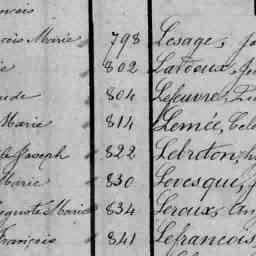 ançois
çois Marie 798 Lesage, J
ie 802 Lavoeux, J
ude 804 Lefeuvre,
Marie 814 Lemée, Cél
le Joseph 822 Lebreton,
Marie 830 Levesque, J
uguste Marie 834 Leroux, An
François 841 Lefrancois,